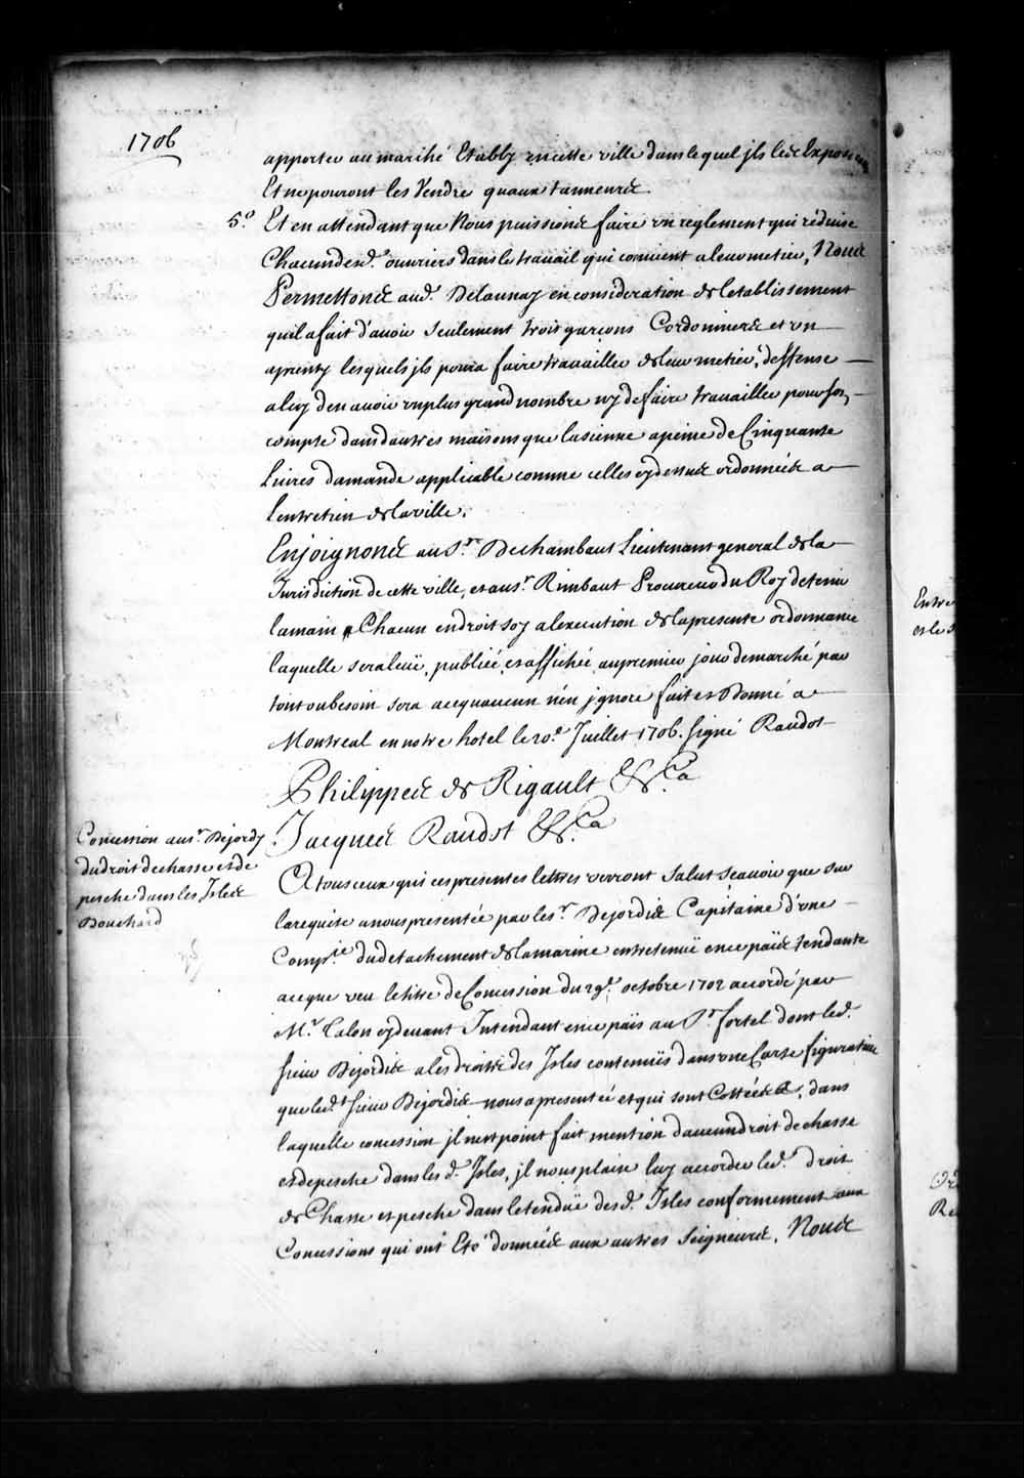 1706
apporter au marché Etably en cette ville dans lequel jls les Exposeron
Et ne pouront les Vendre quaux tanneurs
5.° Et en attendant que Nous puissions faire un reglement qui réduise
Chacun desd. ouvriers dans le travail qui convient a leur metier, Nous
Permettons aud. Delaunay en consideration de letablissement
quil a fait d'avoir seulement trois garçons Cordonniers et un
aprenty lesquels jls poura faire travailler de leur metier, deffense
a luy den avoir un plus grand nombre ny de faire travailler pour son
compte dans dautres maisons que la sienne apeine de Cinquante
Livres damande applicable comme celles cy dessus ordonnéés a
Lentretien de la ville.
Enjoignons au S.r Dechambaut Lieutenant general de la
Jurisdiction de cette ville, et au s.r Rimbaut Procureur du Roy de tenir
la main Chacun endroit soy a lexecution de la presente ordonnance
laquelle sera leüe, publiée, et affichée au premier jour de marché par
tout ou besoin sera ace qu aucun n'en jgnore fait et Donné a
Montreal en notre hotel le 20.e Juillet 1706. signé Raudot
Philippes de Rigault &c.a
Jacques Raudot &c.a
Concession au s.r Dejordy
du droit de chasse et de
pesche dans les Jsles
Bouchard
A tous ceux qui ces presentes lettres verront Salut Scavoir que sur
la requête a nous presentée par le s.r Dejordis Capitaine d'une
Comp.ie du detachement de la marine entretenuë en ce païs tendante
a ce que veu le titre de Concession du 29.e octobre 1702 accordé par
M.r Talon cy devant Intendant en ce païs au S.r fortel dont led.
sieur Dejordis a les droits des Jsles contenuës dans une Carte figurative
que led.t sieur Dejordis nous a presenté et qui sont Cottéés A, dans
laquelle concession jl n'est point fait mention d'aucun droit de chasse
et de pesche dans les d. Jsles, jl nous plaise luy accorder led. droit
de Chasse et pesche dans letenduë des d. Isles conformement aux
Concessions qui ont Eté donnéés aux autres Seigneurs, Nous
Entre
et le s
Re